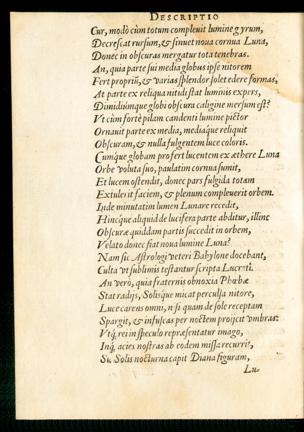 DESCRIPTIO
Cur, modò cùm totum compleuit lumine gyrum,
Decrescat rursum, & sinuet noua cornua Luna,
Donec in obscuras mergatur tota tenebras.
An, quia parte sui media globus ipse nitorem
Fert proprium, & varias splendor solet edere formas,
At parte ex reliqua nitidi stat luminis expers,
Dimidiumque globi obscura caligine mersum est?
Vt cùm fortè pilam candenti lumine pictor
Ornauit parte ex media, mediaque reliquit
Obscuram, & nulla fulgentem luce coloris.
Cumque globum profert lucentem ex æthere Luna
Orbe voluta suo, paulatim cornua sumit,
Et lucem ostendit, donec pars fulgida totam
Extulerit faciem, & plenum compleuerit orbem.
Inde minutatim lumen Lunare recedit,
Hincque aliquid de lucifera parte abditur, illinc
Obscuræ quiddam partis succedit in orbem,
Velato donec fiat noua lumine Luna?
Nam sic Astrologi veteri Babylone docebant,
Culta vt sublimis testantur scripta Lucreti.
An verò, quia fraternis obnoxia Phœbæ
Stat radijs, Solisque micat perculsa nitore,
Luce carens omni, nisi quam de sole receptam
Spargit, & infuscas per noctem projcit vmbras:
Vtque rei in speculo repræsentatur imago,
Inque acies nostras ab eodem missa recurrit,
Sic Solis nocturna capit Diana figuram,
Lu-